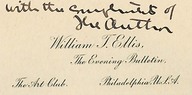 with the compliments of
The Author
William T. Ellis,
The Evening Bulletin,
The Art Club. Philadelphia U.S.A.